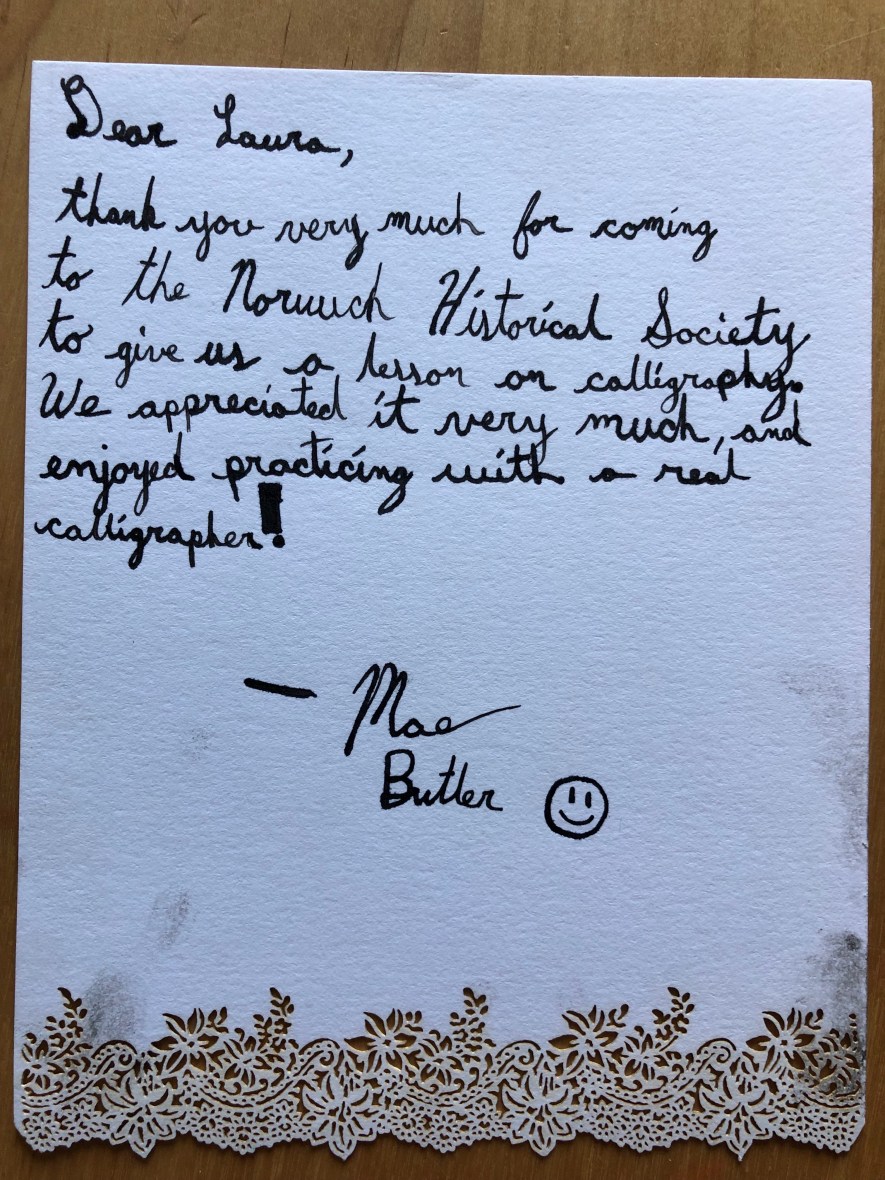 Dear Laura,
thank you very much for coming
to the Norwich Historical Society
to give us a lesson on calligraphy.
We appreciated it very much, and
enjoyed practicing with a real
calligrapher!
— Mae
Butler